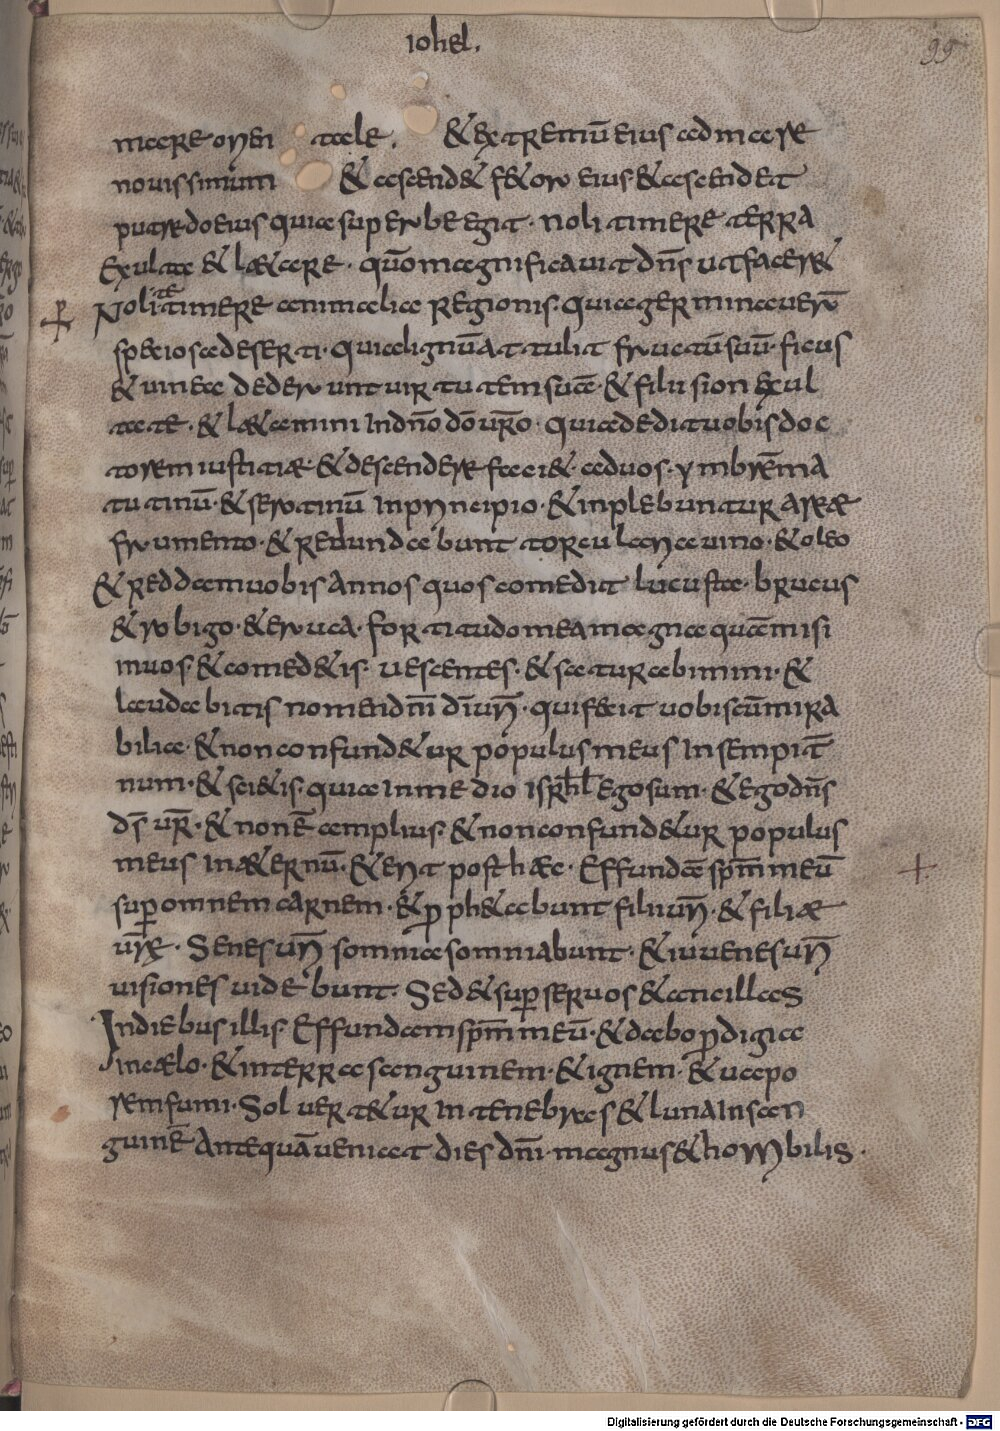 iohel.
99
mare orien tale. & extremū eius ad mare
nouissimum & ascend& f&or eius & ascendet
putredo eius quia superbe egit. noli timere terra
Exulta & l&are. quōm magnificauit dn̄s ut facer&
Nolite timere animalia regionis. quia germinauerū
speciosa deserti. quia lignū attulit fructū suū. ficus
& uinea dederunt uirtutem suā. & filii sion exul
tate. & l&amini In dn̄o dō ur̄o. quia dedit uobis doc
torem iustitiæ. & descendere faci& ad uos. ymbrē ma
tutinū. & serotinū In principio. & inplebuntur areæ
frumento. & redundabunt torcularia uino. & oleo
& reddam uobis Annos quos comedit lucusta. brucus
& rubigo. & eruca. fortitudo mea magna quā misi
in uos. & comed&is. uescentes. & saturabimini. &
laudabitis nomen dn̄i dī ur̄i. qui fecit uobiscū mira
bilia. & non confund&ur populus meus In sempit̄
num. & sci&is. quia In medio Isrhl Ego sum. & Ego dn̄s
ds̄ ur̄. & non ē amplius. & non confund&ur populus
meus In æternū. & erit post hæc. Effundā spm̄ meū
sup omnem carnem. & pph&abunt filii ur̄i. & filiæ
ur̄æ. Senes ur̄i somnia somniabunt. & iuuenes ur̄i
uisiones uidebunt. Sed & sup seruos & ancillas
In diebus illis. Effundam spm̄ meū. & dabo pdigia
In cælo. & in terra sanguinem. & ignem. & uapo
rem fumi. Sol uert&ur In tenebras & luna In san
guinē Antequā ueniat dies dn̄i. magnus & horribilis.
Digitalisierung gefördert durch die Deutsche Forschungsgemeinschaft - DFG